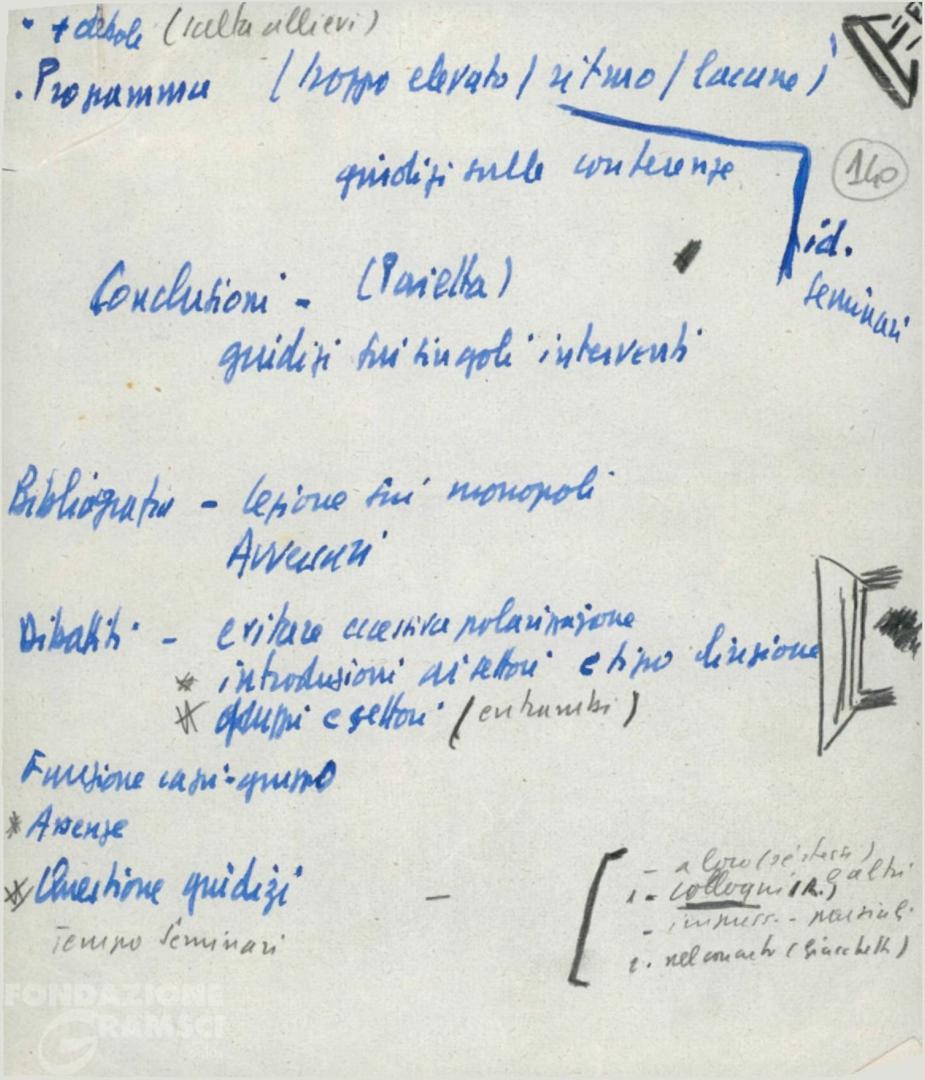 + debole (scelta allievi)
. Programma (troppo elevato / ritmo / lacune)
140
giudizi sulle conferenze
id.
seminari
Conclusioni - (Pajetta)
giudizi sui singoli interventi
Bibliografia - lezione sui monopoli
Avversari
Dibattiti - evitare eccessiva polarizzazione
* introduzioni ai settori e tipo direzione
* gruppi e settori (entrambi)
Funzione capi-gruppo
* Assenze
* Questione giudizi -
Tempo Seminari
- a loro (se stessi) e altri
1 - colloqui (R.)
- impress. - parziali
2. nel concreto (Giacchetti)
FONDAZIONE
GRAMSCI